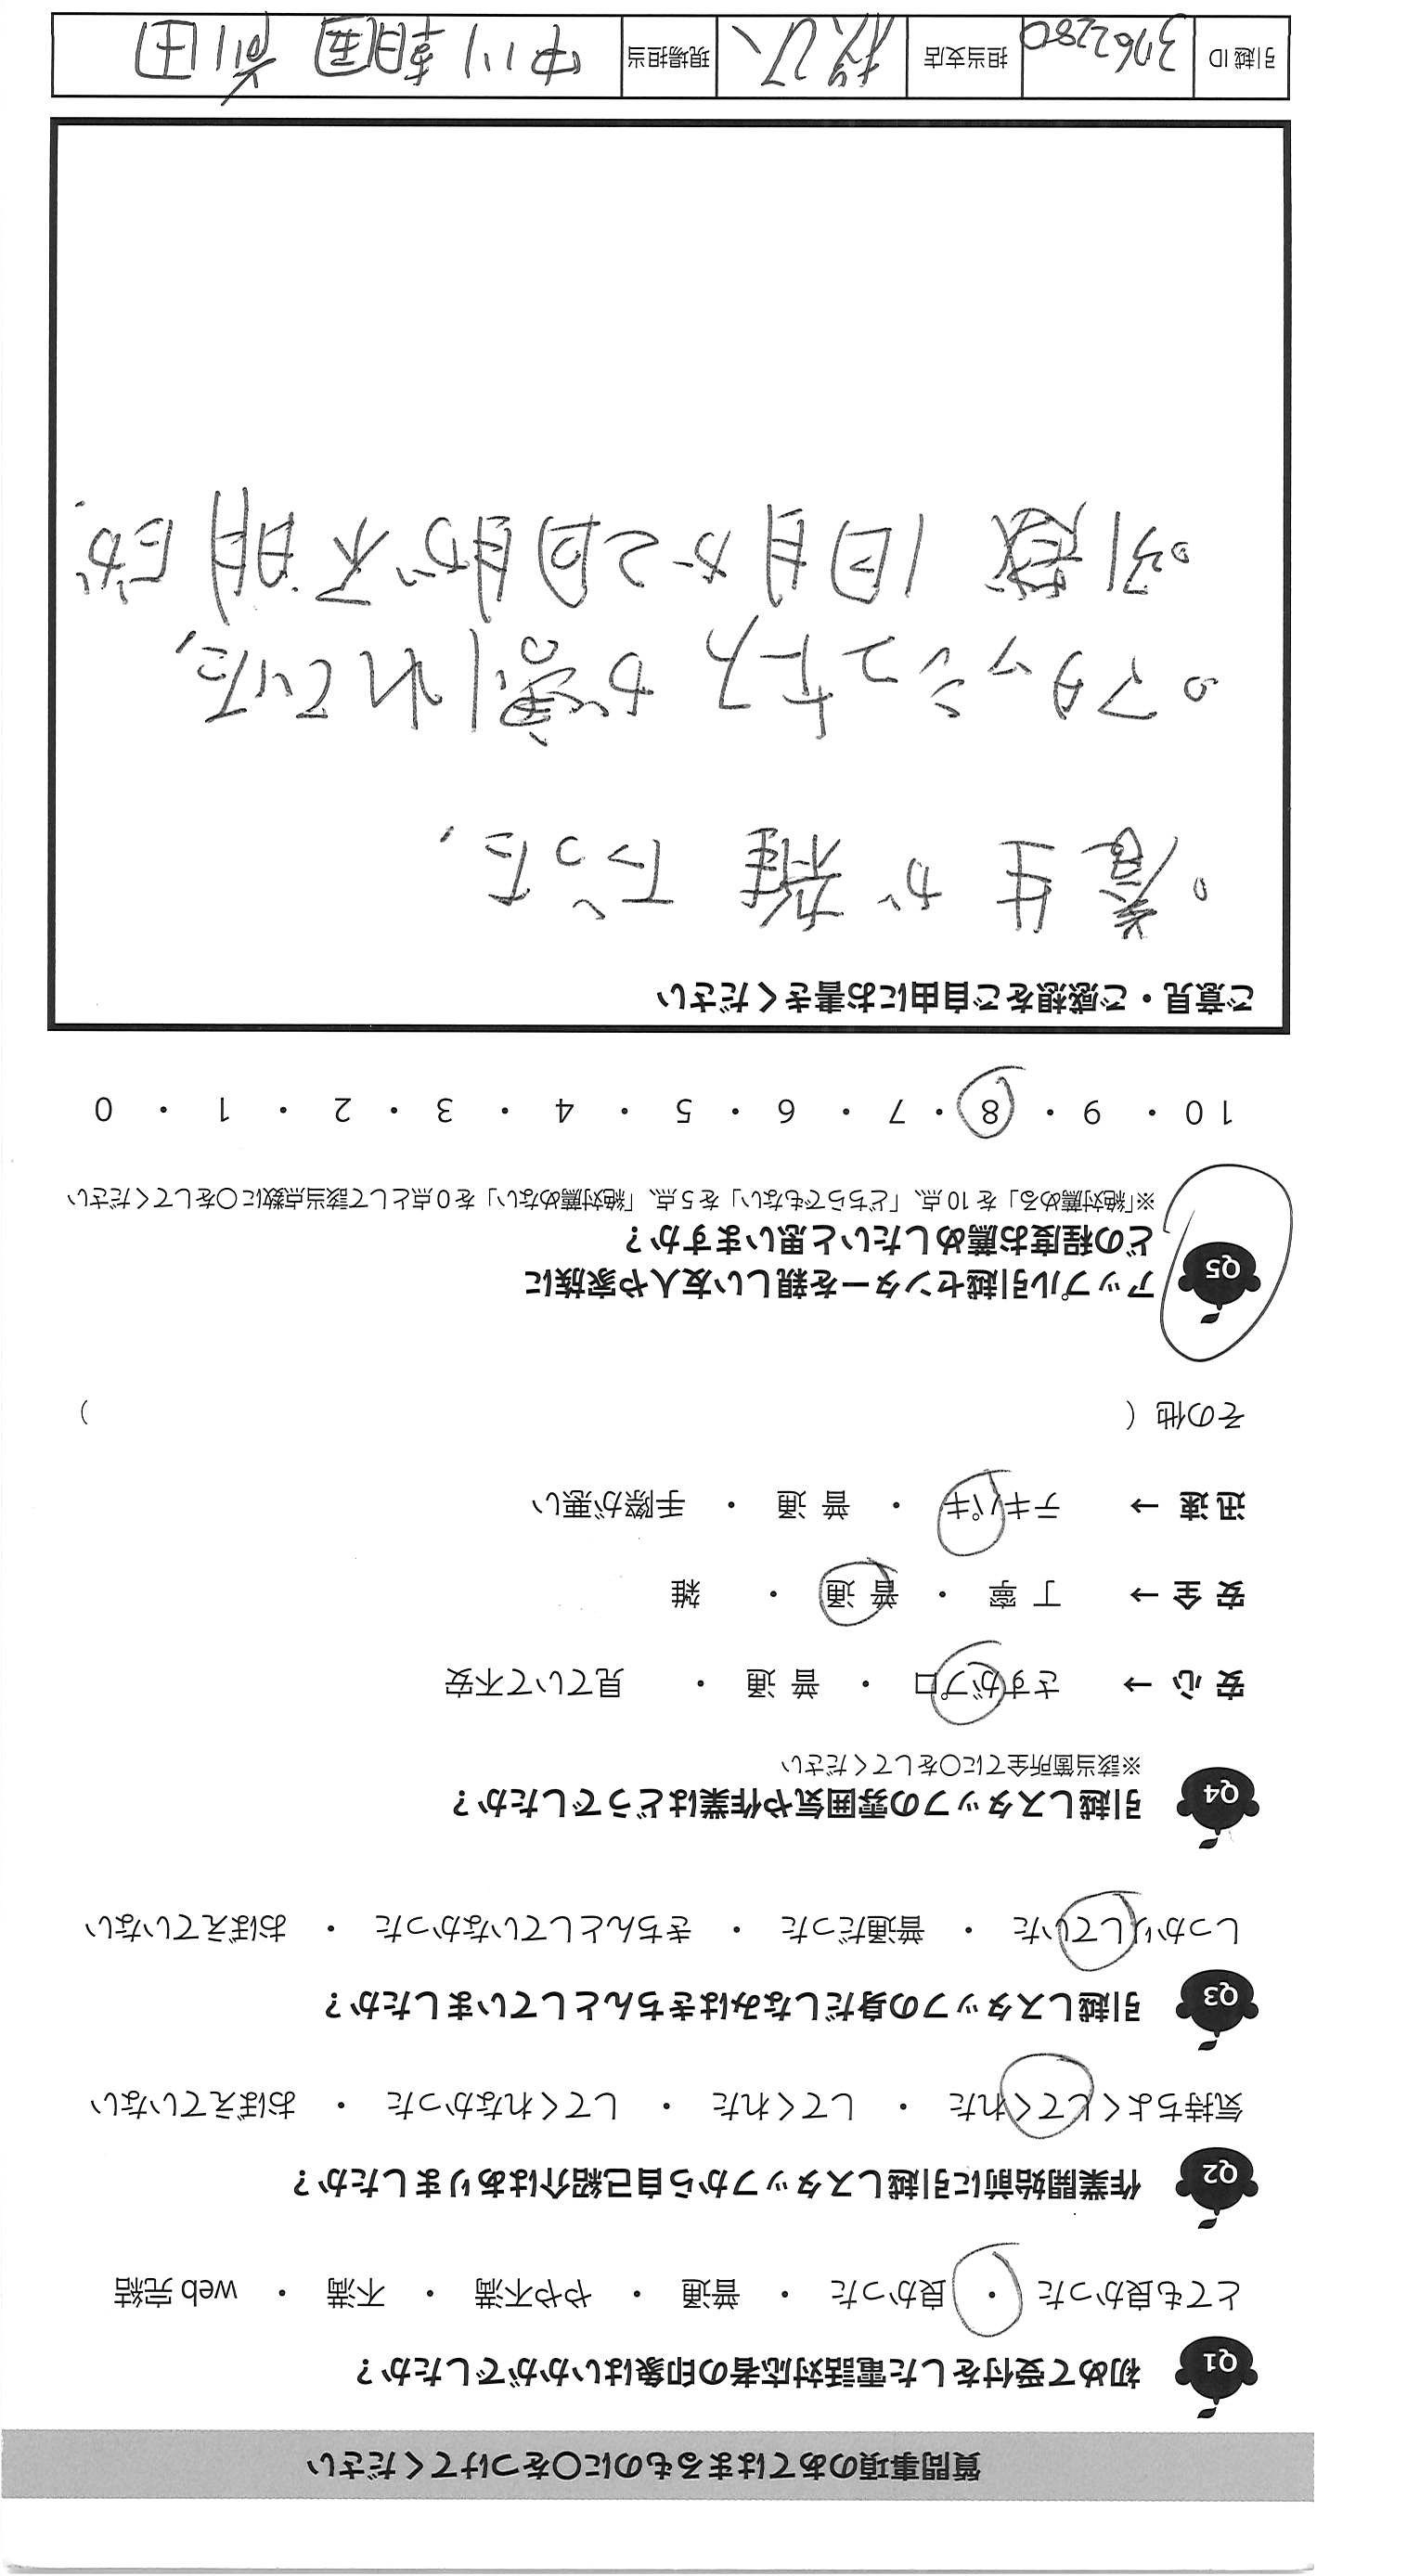 質問事項のあてはまるものに〇をつけてください
Q1 初めて受付をした電話対応者の印象はいかがでしたか?
とても良かった ・ 良かった ・ 普通 ・ やや不満 ・ 不満 ・ web 完結
Q2 作業開始前に引越しスタッフから自己紹介はありましたか?
気持ちよくしてくれた ・ してくれた ・ してくれなかった ・ おぼえていない
Q3 引越しスタッフの身だしなみはきちんとしていましたか?
しっかりしていた ・ 普通だった ・ きちんとしていなかった ・ おぼえていない
Q4 引越しスタッフの雰囲気や作業はどうでしたか?
※該当箇所全てに〇をしてください
安 心 → さすがプロ ・ 普 通 ・ 見ていて不安
安 全 → 丁 寧 ・ 普 通 ・ 雑
迅 速 → テキパキ ・ 普 通 ・ 手際が悪い
その他 ( )
Q5 アップル引越センターを親しい友人や家族に
どの程度お薦めしたいと思いますか?
※「絶対薦める」を 10 点、「どちらでもない」を 5 点、「絶対薦めない」を 0 点として該当点数に〇をしてください
10 ・ 9 ・ 8 ・ 7 ・ 6 ・ 5 ・ 4 ・ 3 ・ 2 ・ 1 ・ 0
ご意見・ご感想をご自由にお書きください
。養生が雑だった、
。アタッシュケースが割れていた、
。引越1回目か2回目か不明だが、
引越 ID 3762280 担当支店 現場担当 中川 朝國 前田